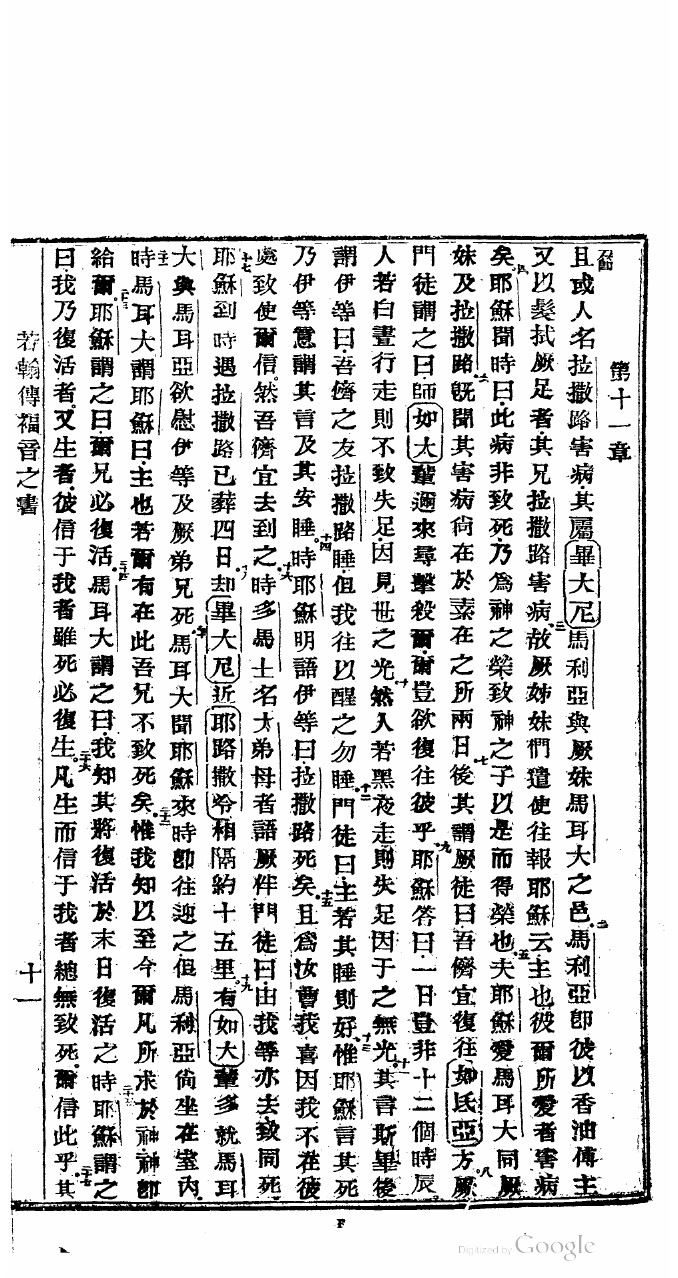 第十一章
且或人名拉撒路害病其屬畢大尼馬利亞與厥妹馬耳大之邑馬利亞卽彼以香油傅主
又以髮拭厥足者其兄拉撒路害病故厥姊妹們遣使往報耶穌云主也彼爾所愛者害病
矣耶穌聞時曰此病非致死乃爲神之榮致神之子以是而得榮也夫耶穌愛馬耳大同厥
妹及拉撒路旣聞其害病尙在於素在之所兩日後其謂厥徒曰吾儕宜復往如氐亞方厥
門徒謂之曰師如大輩邇來尋擊殺爾爾豈欲復往彼乎耶穌答曰一日豈非十二個時辰
人若白晝行走則不致失足因見世之光然人若黑夜走則失足因于之無光其言斯畢後
謂伊等曰吾儕之友拉撒路睡但我往以醒之勿睡門徒曰主若其睡則好惟耶穌言其死
乃伊等意謂其言及其安睡時耶穌明語伊等曰拉撒路死矣且爲汝曹我喜因我不在彼
處致使爾信然吾儕宜去到之時多馬士名大弟母者語厥伴門徒曰由我等亦去致同死
耶穌到時遇拉撒路已葬四日却畢大尼近耶路撒冷相隔約十五里有如大輩多就馬耳
大與馬耳亞欲慰伊等及厥弟兄死馬耳大聞耶穌來時卽往迎之但馬利亞尙坐在室內
時馬耳大謂耶穌曰主也若爾有在此吾兄不致死矣惟我知以至今爾凡所求於神神卽
給爾耶穌謂之曰爾兄必復活馬耳大謂之曰我知其將復活於末日復活之時耶穌謂之
曰我乃復活者又生者彼信于我者雖死必復生凡生而信于我者總無致死爾信此乎其
若翰傳福音之書
十一
F
Digitized by Google